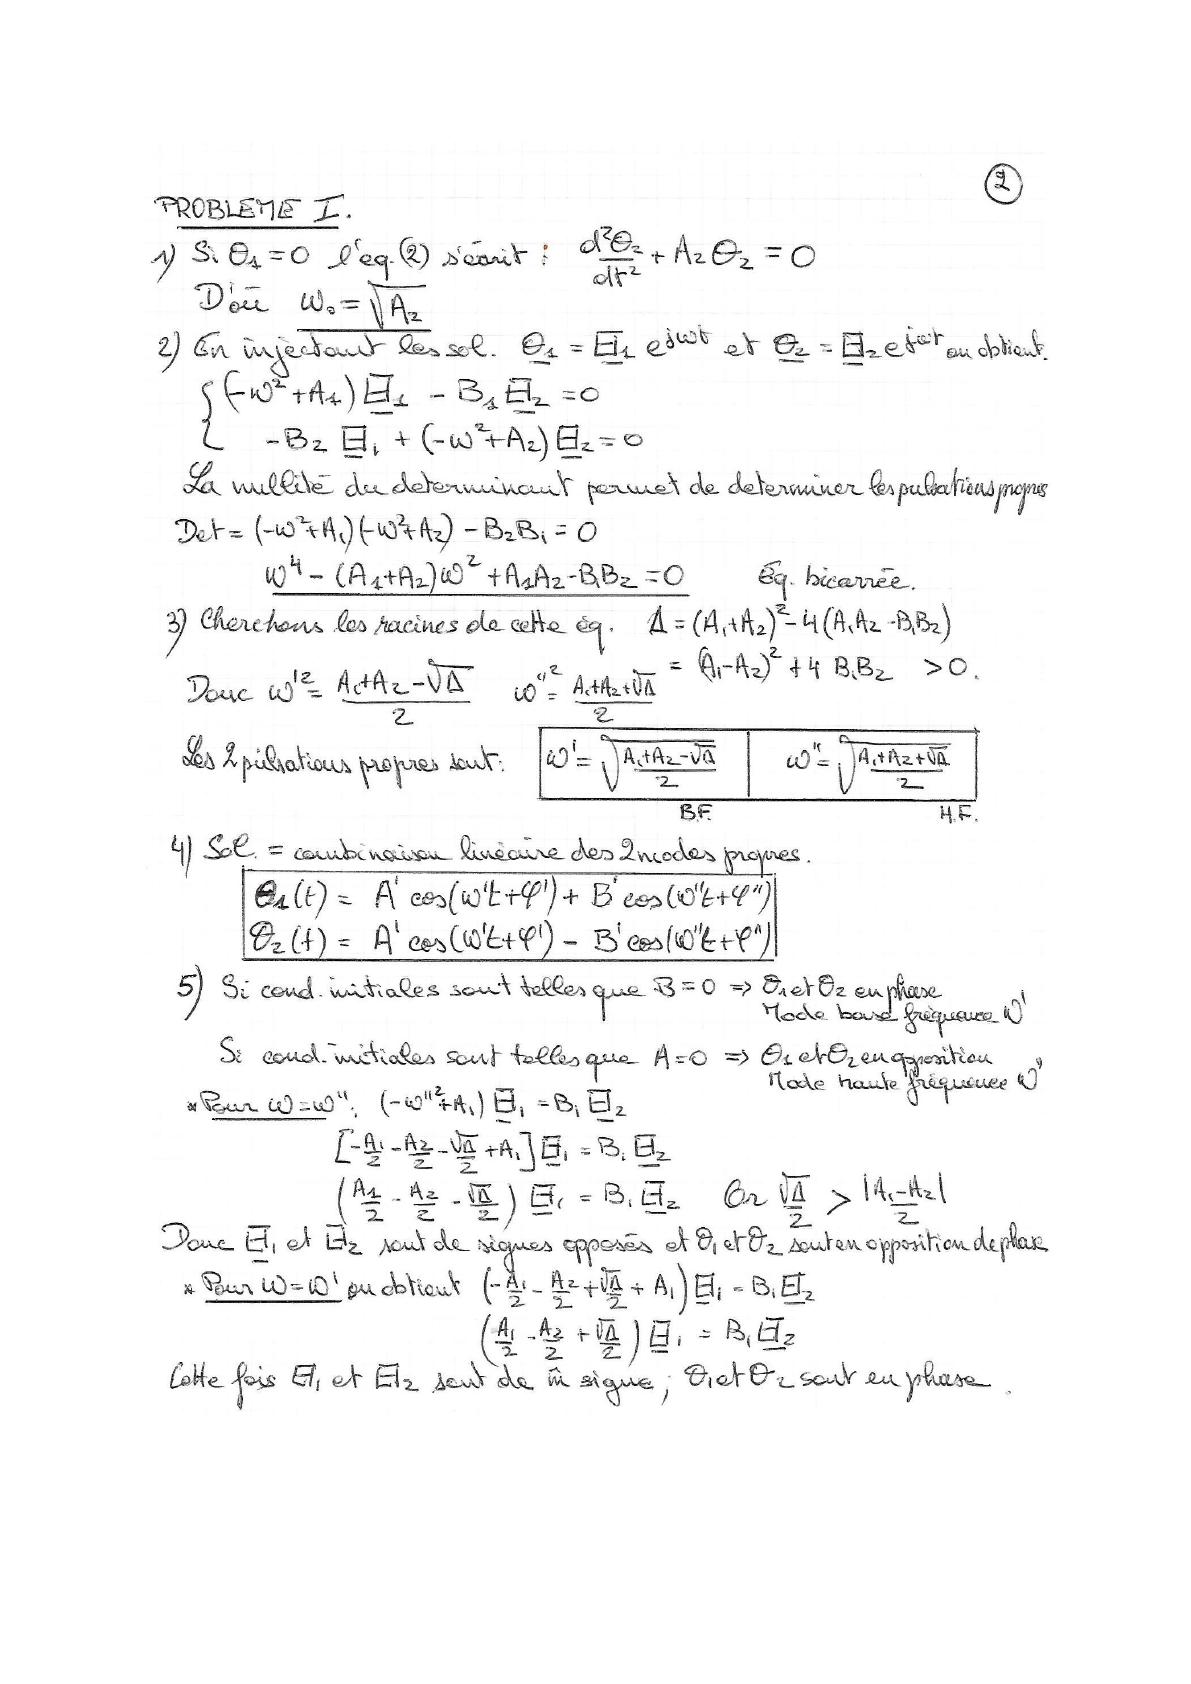 2
PROBLEME I.
1) Si θ1 = 0 l'éq. (2) s'écrit : d²θ2/dt² + A2 θ2 = 0
D'où ω0 = √A2
2) En injectant les sol. θ1 = Θ1 e^jωt et θ2 = Θ2 e^jωt on obtient.
{ (-ω² + A1) Θ1 - B1 Θ2 = 0
-B2 Θ1 + (-ω² + A2) Θ2 = 0
La nullité du determinant permet de determiner les pulsations propres
Det = (-ω² + A1)(-ω² + A2) - B2B1 = 0
ω⁴ - (A1+A2)ω² + A1A2 - B1B2 = 0 Éq. bicarrée.
3) Cherchons les racines de cette éq. Δ = (A1+A2)² - 4(A1A2 - B1B2)
= (A1-A2)² + 4 B1B2 > 0.
Donc ω'² = (A1+A2-√Δ)/2 ω''² = (A1+A2+√Δ)/2
Les 2 pulsations propres sont : ω' = √((A1+A2-√Δ)/2) ω'' = √((A1+A2+√Δ)/2)
B.F. H.F.
4) Sol. = combinaison linéaire des 2 modes propres.
θ1(t) = A' cos(ω't+φ') + B' cos(ω''t+φ'')
θ2(t) = A' cos(ω't+φ') - B' cos(ω''t+φ'')
5) Si cond. initiales sont telles que B = 0 => θ1 et θ2 en phase
Mode basse fréquence ω'
Si cond. initiales sont telles que A = 0 => θ1 et θ2 en opposition
Mode haute fréquence ω''
* Pour ω = ω'' : (-ω''² + A1) Θ1 = B1 Θ2
[-A1/2 - A2/2 - √Δ/2 + A1] Θ1 = B1 Θ2
(A1/2 - A2/2 - √Δ/2) Θ1 = B1 Θ2 Or √Δ/2 > |A1-A2|/2
Donc Θ1 et Θ2 sont de signes opposés et θ1 et θ2 sont en opposition de phase
* Pour ω = ω' on obtient (-A1/2 - A2/2 + √Δ/2 + A1) Θ1 = B1 Θ2
(A1/2 - A2/2 + √Δ/2) Θ1 = B1 Θ2
Cette fois Θ1 et Θ2 sont de m̂ signe ; θ1 et θ2 sont en phase.